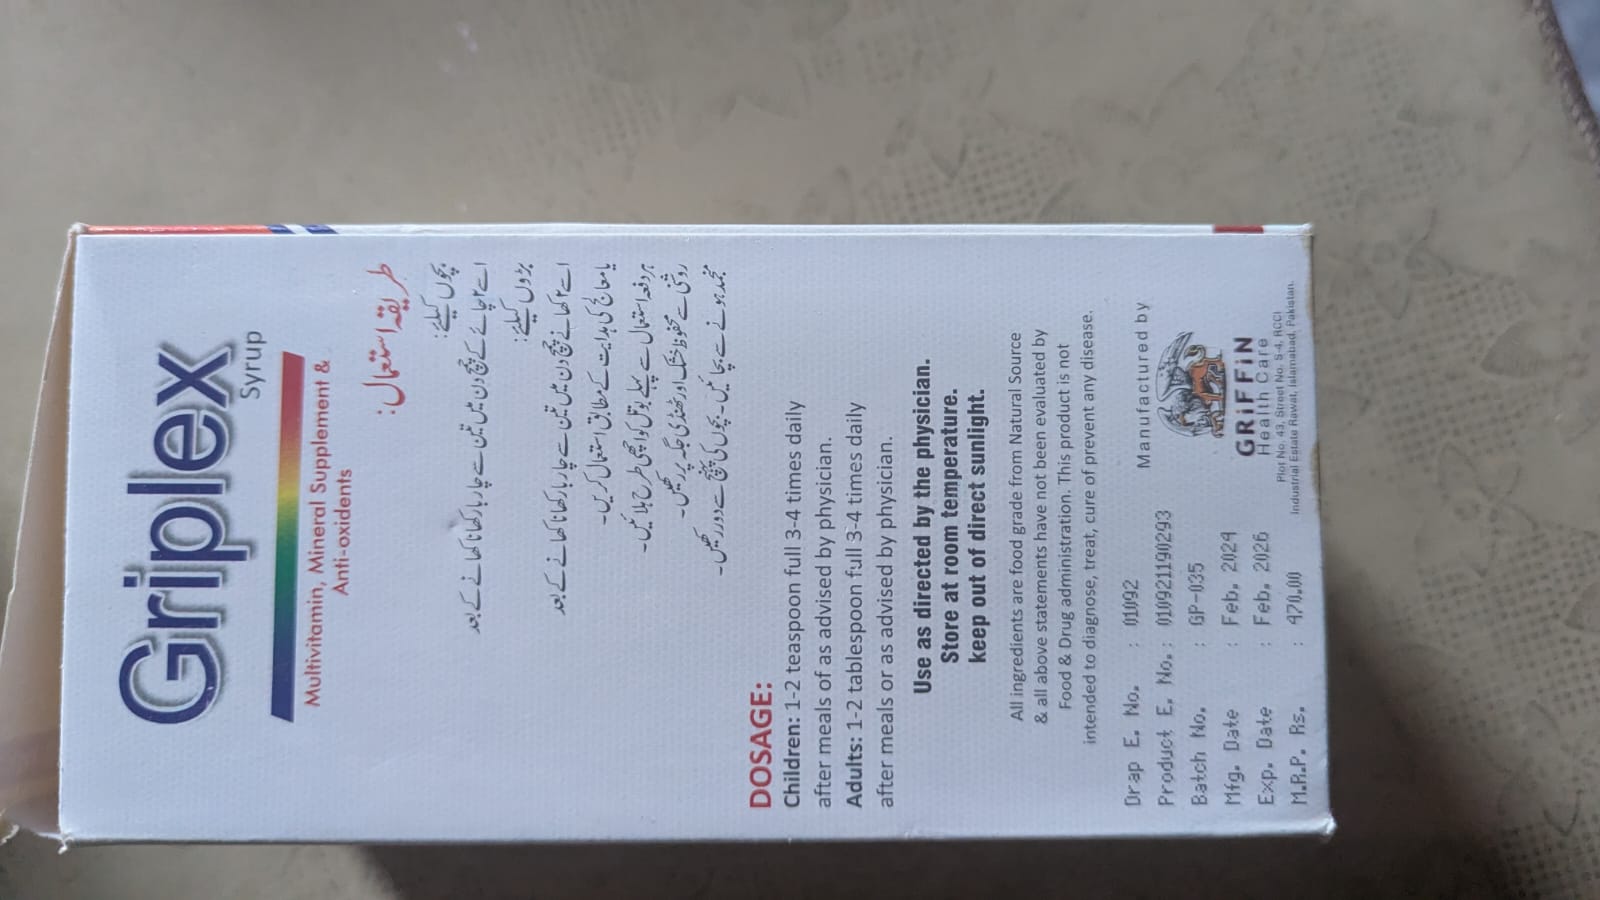 Griplex
Syrup
Multivitamin, Mineral Supplement &
Anti-oxidents
طریقہ استعمال:
بچوں کیلئے:
۱ سے ۲ چائے کے چمچ دن میں تین سے چار بار کھانا کھانے کے بعد
بڑوں کیلئے:
۱ سے ۲ کھانے چمچ دن میں تین سے چار بار کھانا کھانے کے بعد
یا معالج کی ہدایت کے مطابق استعمال کریں۔
ہر دفعہ استعمال سے پہلے بوتل کو اچھی طرح ہلائیں۔
روشنی سے محفوظ خشک اور ٹھنڈی جگہ پر رکھیں۔
منجمد ہونے سے بچائیں۔ بچوں کی پہنچ سے دور رکھیں۔
DOSAGE:
Children: 1-2 teaspoon full 3-4 times daily
after meals of as advised by physician.
Adults: 1-2 tablespoon full 3-4 times daily
after meals or as advised by physician.
Use as directed by the physician.
Store at room temperature.
keep out of direct sunlight.
All ingredients are food grade from Natural Source
& all above statements have not been evaluated by
Food & Drug administration. This product is not
intended to diagnose, treat, cure of prevent any disease.
Drap E. No. : 01092
Product E. No. : 010921190293
Batch No. : GP-035
Mfg. Date : Feb. 2024
Exp. Date : Feb. 2026
M.R.P. Rs. : 970.00
Manufactured by
GRiFFiN
Health Care
Plot No. 43, Street No. S-4, RCCI
Industrial Estate Rawat, Islamabad, Pakistan.